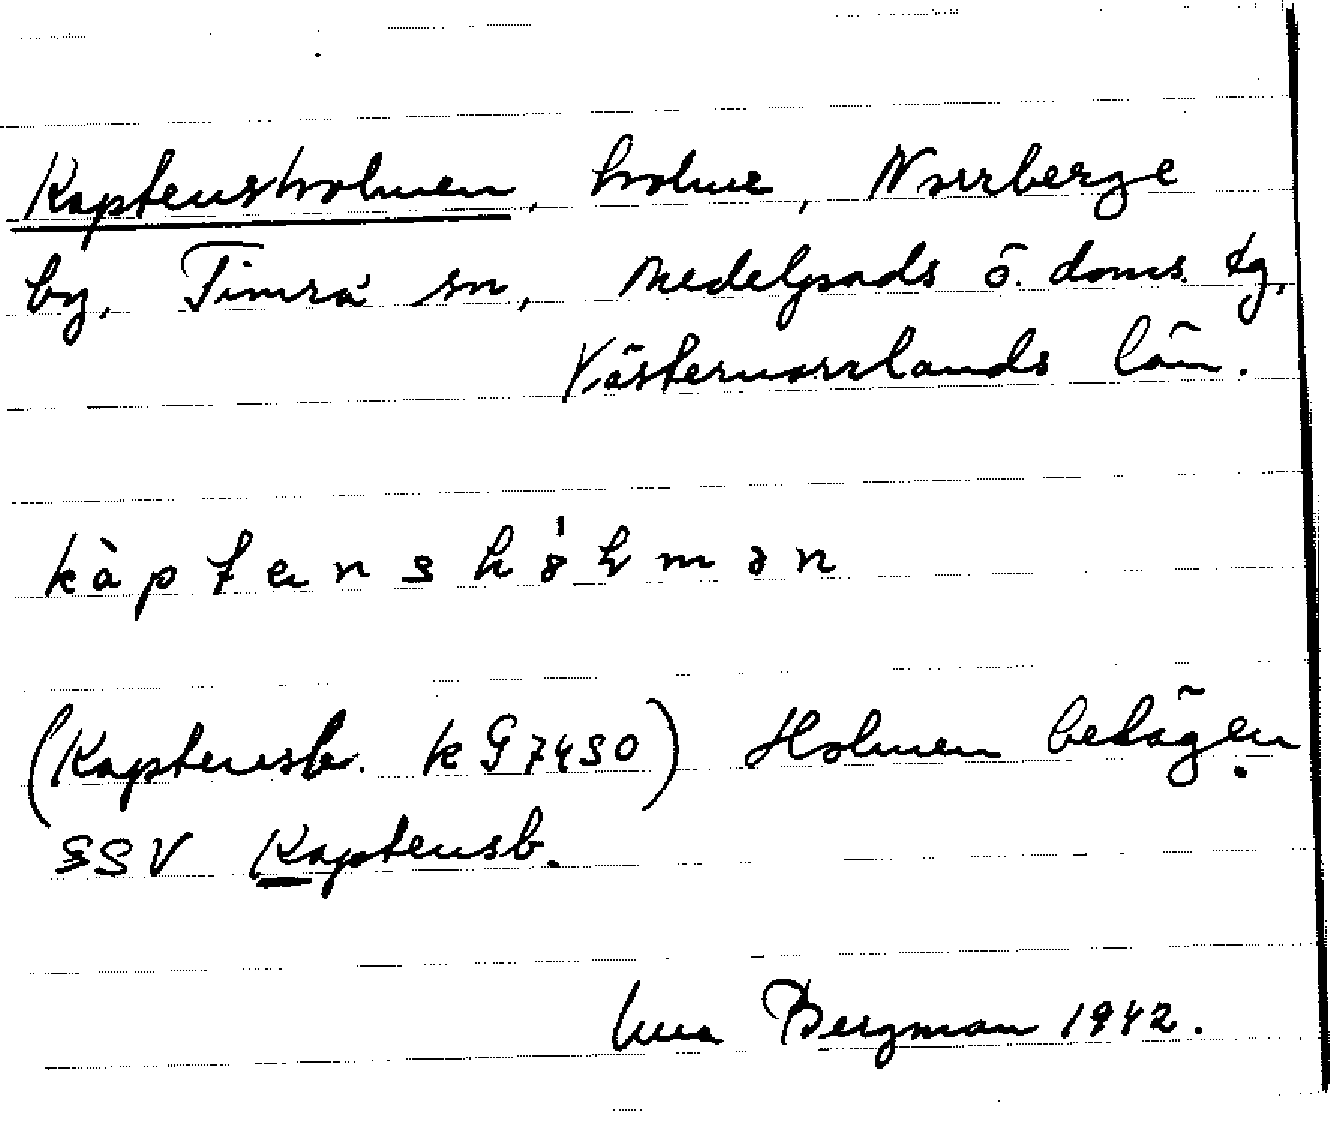 Kaptensholmen, holme, Norrberge
by, Timrå sn, Medelpads ö. doms. tg,
Västernorrlands län.
kàptenshǫ́ḷmən
(Kaptensb. k G7490) Holmen belägen
SSV Kaptensb.
Una Bergman 1942.